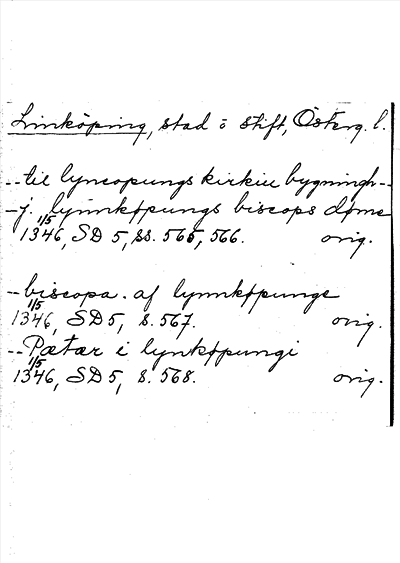 Linköping, stad o stift, Österg. l.
-- til lyncopungs kirkiu bygningh --
-- j. lynnkøpungs biscops døme
1/5
1346, SD 5, ss. 565, 566. orig.
-- biscopa. af lynnkøpunge
1/5
1346, SD 5, s. 567. orig.
-- Pætær i lynkøpungi
1/5
1346, SD 5, s. 568. orig.